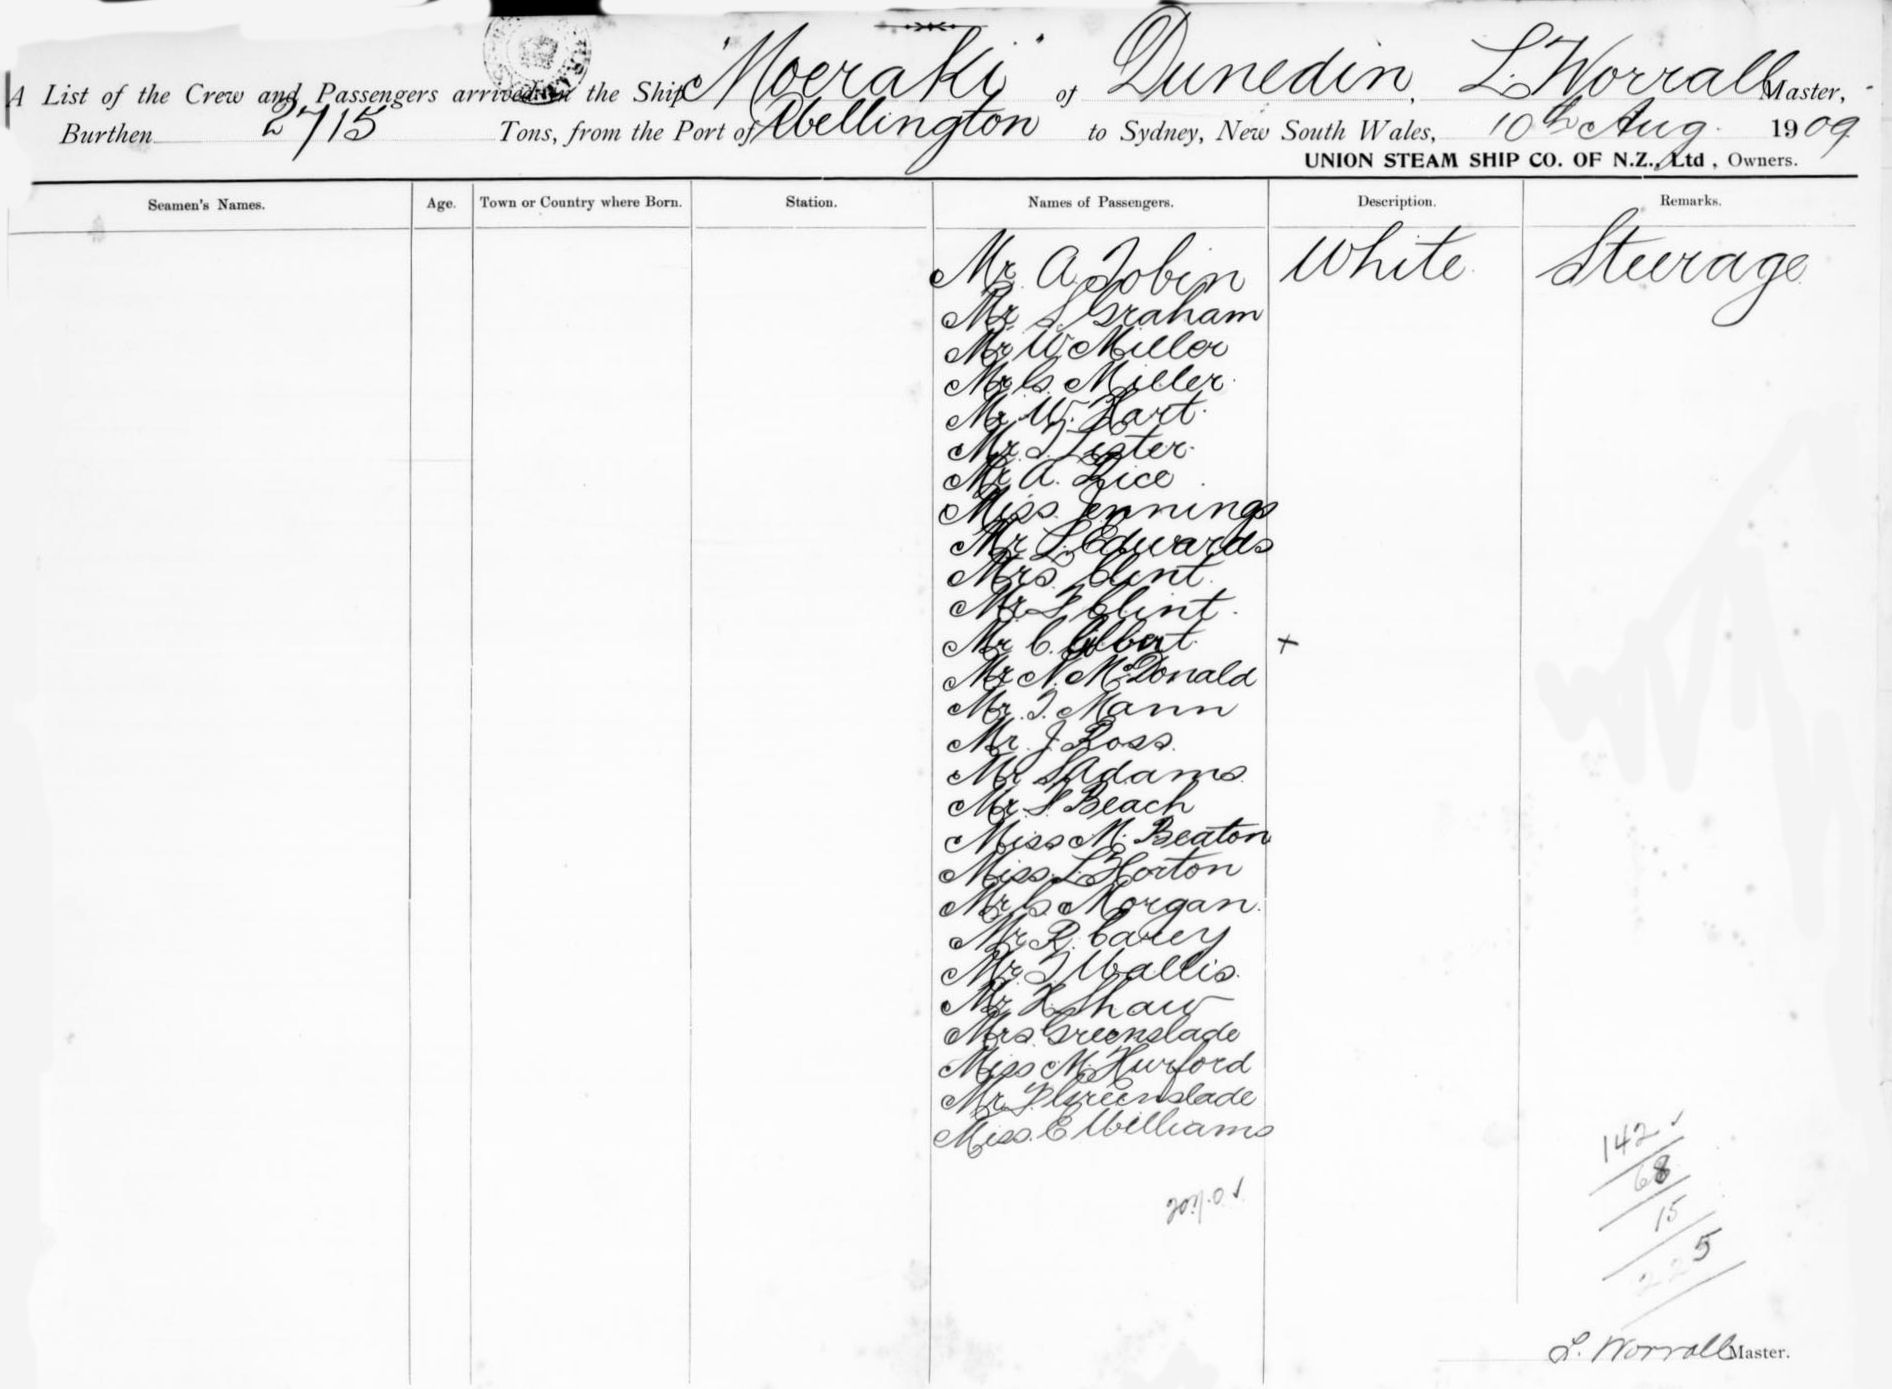 A List of the Crew and Passengers arrived in the Ship "Moeraki" of Dunedin, L. Worrall Master,
Burthen 2715 Tons, from the Port of Wellington to Sydney, New South Wales, 10th Aug. 1909
UNION STEAM SHIP CO. OF N.Z., Ltd, Owners.
Seamen's Names. Age. Town or Country where Born. Station. Names of Passengers. Description. Remarks.
Mr. A. Tobin White Steerage
Mr. S. Graham
Mr W. Miller
Mr C. Miller
Mr. W. Hart
Mr. T. Lester
Mr A. Rice
Miss. Jennings
Mr. L. Edwards
Mrs. Clint
Mr F. Clint
Mr. C. +
Mr N. McDonald
Mr. T. Mann
Mr. J. Ross
Mr S. Adams
Mr. F. Beach
Miss M. Beaton
Miss. L. Horton
Mr C. Morgan
Mr R. Carey
Mr. T. Wallis
Mr H. Shaw
Mrs. Greenslade
Miss M. Hurford
Mr. F. Greenslade
Miss. E Williams
142
68
15
225
L. Worrall Master.